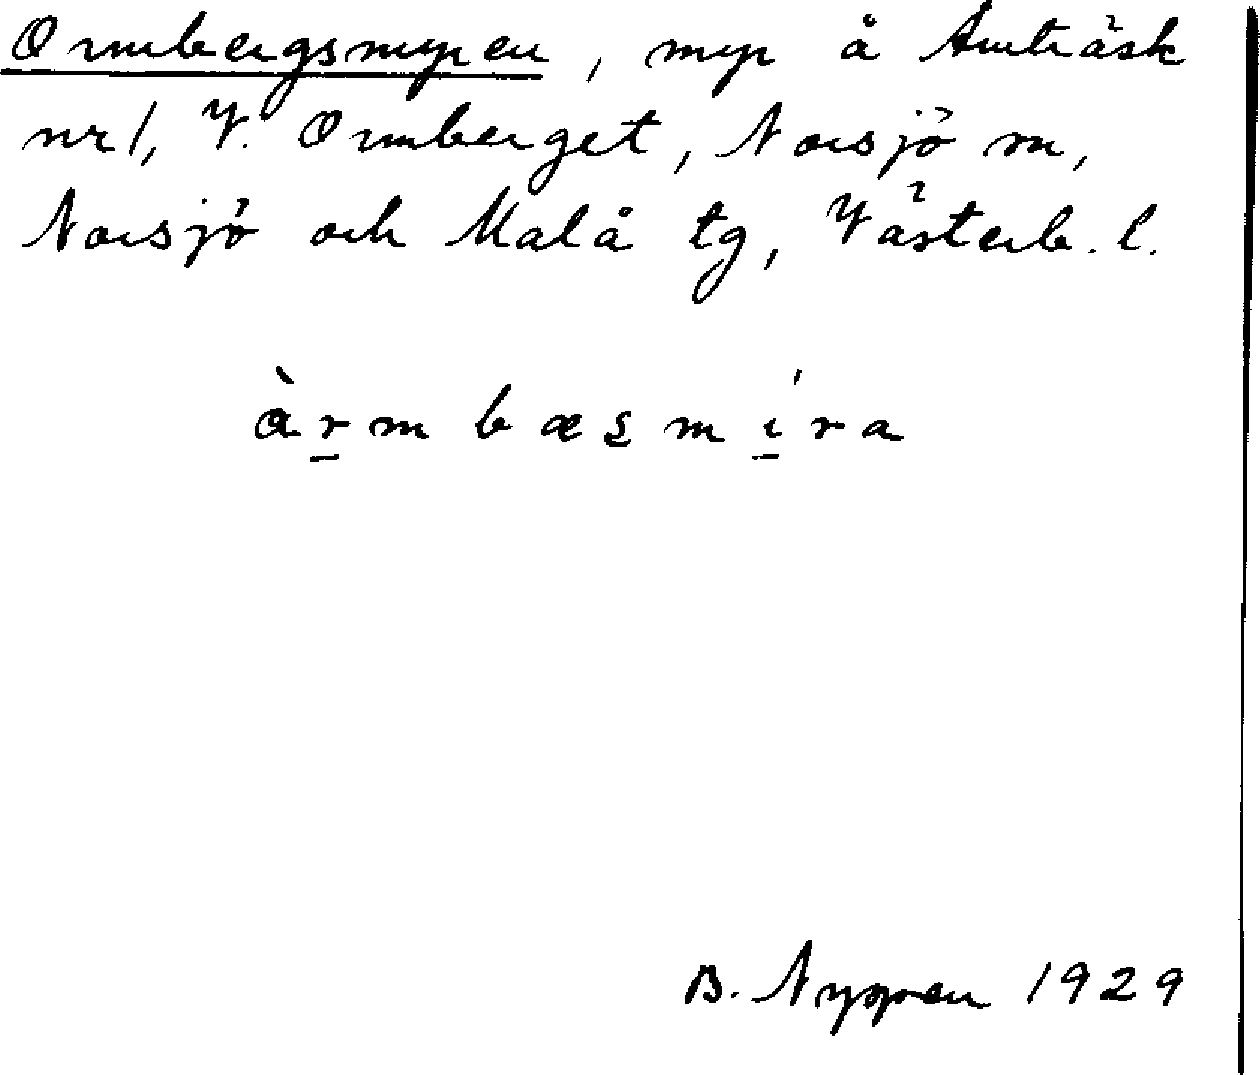 Ormbergsmyren, myr å Amträsk
nr 1, V. Ormberget, Norsjö sn,
Norsjö och Malå tg, Västerb. l.
àr̠mbæs̠mí̠ra
B. Nygren 1929